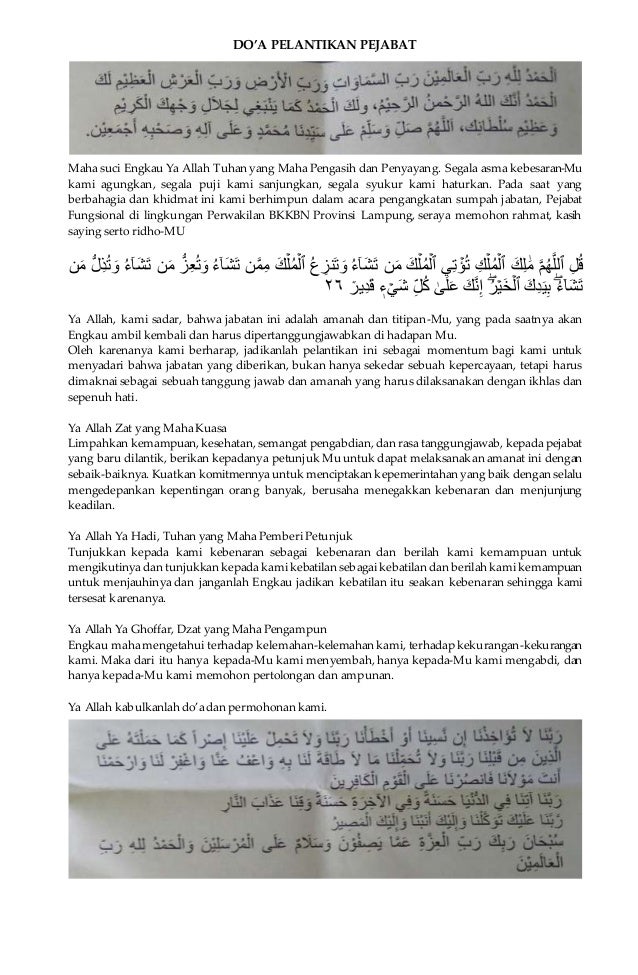 DO’A PELANTIKAN PEJABAT
الْحَمْدُ لِلَّهِ رَبِّ الْعَالَمِيْنَ رَبِّ السَّمَاوَاتِ وَرَبِّ الْأَرْضِ وَرَبِّ الْعَرْشِ الْعَظِيْمِ لَكَ
الْحَمْدُ أَنَّكَ اللهُ الرَّحْمنُ الرَّحِيْمُ، ولَكَ الْحَمْدُ كَمَا يَنْبَغِي لِجَلَالِ وَجْهِكَ الْكَرِيْمِ
وَعَظِيْمِ سُلْطَانِكَ، اَللَّهُمَّ صَلِّ وَسَلِّمْ عَلَى سَيِّدِنَا مُحَمَّدٍ وَعَلَى آلِهِ وَصَحْبِهِ أَجْمَعِيْن.
Maha suci Engkau Ya Allah Tuhan yang Maha Pengasih dan Penyayang. Segala asma kebesaran-Mu
kami agungkan, segala puji kami sanjungkan, segala syukur kami haturkan. Pada saat yang
berbahagia dan khidmat ini kami berhimpun dalam acara pengangkatan sumpah jabatan, Pejabat
Fungsional di lingkungan Perwakilan BKKBN Provinsi Lampung, seraya memohon rahmat, kasih
saying serto ridho-MU
قُلِ ٱللَّهُمَّ مَٰلِكَ ٱلْمُلْكِ تُؤْتِي ٱلْمُلْكَ مَن تَشَآءُ وَتَنزِعُ ٱلْمُلْكَ مِمَّن تَشَآءُ وَتُعِزُّ مَن تَشَآءُ وَتُذِلُّ مَن
تَشَآءُۖ بِيَدِكَ ٱلْخَيْرُۖ إِنَّكَ عَلَىٰ كُلِّ شَيْءٖ قَدِيرٞ ٢٦
Ya Allah, kami sadar, bahwa jabatan ini adalah amanah dan titipan-Mu, yang pada saatnya akan
Engkau ambil kembali dan harus dipertanggungjawabkan di hadapan Mu.
Oleh karenanya kami berharap, jadikanlah pelantikan ini sebagai momentum bagi kami untuk
menyadari bahwa jabatan yang diberikan, bukan hanya sekedar sebuah kepercayaan, tetapi harus
dimaknai sebagai sebuah tanggung jawab dan amanah yang harus dilaksanakan dengan ikhlas dan
sepenuh hati.
Ya Allah Zat yang Maha Kuasa
Limpahkan kemampuan, kesehatan, semangat pengabdian, dan rasa tanggungjawab, kepada pejabat
yang baru dilantik, berikan kepadanya petunjuk Mu untuk dapat melaksanakan amanat ini dengan
sebaik-baiknya. Kuatkan komitmennya untuk menciptakan kepemerintahan yang baik dengan selalu
mengedepankan kepentingan orang banyak, berusaha menegakkan kebenaran dan menjunjung
keadilan.
Ya Allah Ya Hadi, Tuhan yang Maha Pemberi Petunjuk
Tunjukkan kepada kami kebenaran sebagai kebenaran dan berilah kami kemampuan untuk
mengikutinya dan tunjukkan kepada kami kebatilan sebagai kebatilan dan berilah kami kemampuan
untuk menjauhinya dan janganlah Engkau jadikan kebatilan itu seakan kebenaran sehingga kami
tersesat karenanya.
Ya Allah Ya Ghoffar, Dzat yang Maha Pengampun
Engkau maha mengetahui terhadap kelemahan-kelemahan kami, terhadap kekurangan-kekurangan
kami. Maka dari itu hanya kepada-Mu kami menyembah, hanya kepada-Mu kami mengabdi, dan
hanya kepada-Mu kami memohon pertolongan dan ampunan.
Ya Allah kabulkanlah do’a dan permohonan kami.
رَبَّنَا لَا تُؤَاخِذْنَا إِن نَّسِينَا أَوْ أَخْطَأْنَا رَبَّنَا وَلَا تَحْمِلْ عَلَيْنَا إِصْراً كَمَا حَمَلْتَهُ عَلَى
الَّذِينَ مِن قَبْلِنَا رَبَّنَا وَلَا تُحَمِّلْنَا مَا لَا طَاقَةَ لَنَا بِهِ وَاعْفُ عَنَّا وَاغْفِرْ لَنَا وَارْحَمْنَا
أَنتَ مَوْلَانَا فَانصُرْنَا عَلَى الْقَوْمِ الْكَافِرِينَ
رَبَّنَا آتِنَا فِي الدُّنْيَا حَسَنَةً وَفِي الآخِرَةِ حَسَنَةً وَقِنَا عَذَابَ النَّارِ
رَّبَّنَا عَلَيْكَ تَوَكَّلْنَا وَإِلَيْكَ أَنَبْنَا وَإِلَيْكَ الْمَصِيرُ
سُبْحَانَ رَبِّكَ رَبِّ الْعِزَّةِ عَمَّا يَصِفُوْنَ وَسَلَامٌ عَلَى الْمُرْسَلِيْنَ وَالْحَمْدُ لِلهِ رَبِّ
الْعَالَمِيْنَ